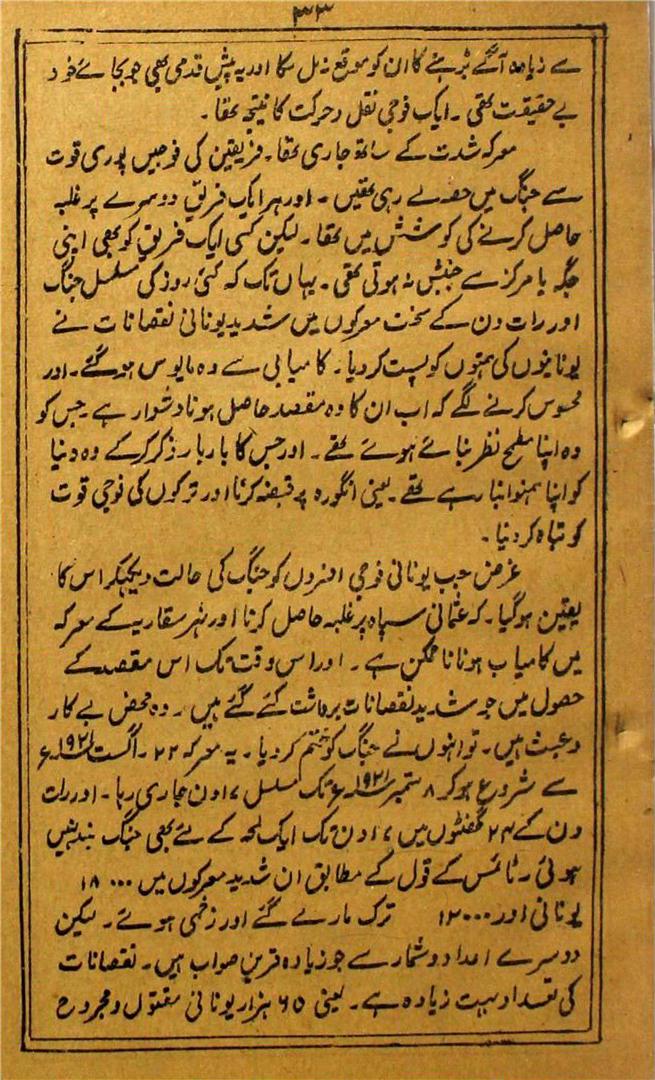 ۳۳
سے زیادہ آگے بڑہنے کا ان کو موقع نہ مل سکا اور یہ پیش قدمی بھی جو بجائے خود
بے حقیقت تھی ۔ ایک فوجی نقل و حرکت کا نتیجہ تھا ۔
معرکہ شدت کے ساتھ جاری تھا ۔ فریقین کی فوجیں پوری قوت
سے جنگ میں حصہ لے رہی تھیں ۔ اور ہر ایک فریق دوسرے پر غلبہ
حاصل کرنے کی کوشش میں تھا ۔ لیکن کسی ایک فریق کو بھی اپنی
جگہ یا مرکز سے جنبش نہ ہوتی تھی ۔ یہاں تک کہ کئی روز کی مسلسل جنگ
اور رات دن کے سخت معرکوں میں شدید یونانی نقصانات نے
یونانیوں کی ہمتوں کو پست کر دیا ۔ کامیابی سے وہ مایوس ہو گئے ۔ اور
محسوس کرنے لگے کہ اب ان کا وہ مقصد حاصل ہونا دشوار ہے ۔ جس کو
وہ اپنا مطمح نظر بنائے ہوئے تھے ۔ اور جس کا بار بار ذکر کر کے وہ دنیا
کو اپنا ہمنوا بنا رہے تھے ۔ یعنی انگورہ پر قبضہ کرنا اور ترکوں کی فوجی قوت
کو تباہ کر دینا ۔
غرض جب یونانی فوجی افسروں کو جنگ کی حالت دیکھکر اس کا
یقین ہو گیا ۔ کہ عثمانی سپاہ پر غلبہ حاصل کرنا اور نہر سقاریہ کے معرکہ
میں کامیاب ہونا ناممکن ہے ۔ اور اس وقت تک اس مقصد کے
حصول میں جو شدید نقصانات برداشت کئے گئے ہیں ۔ وہ محض بے کار
و عبث ہیں ۔ تو انہوں نے جنگ کو ختم کر دیا ۔ یہ معرکہ ۲۲ ۔ اگست ۱۹۲۱ء
سے شروع ہو کر ۸ ستمبر ۱۹۲۱ء تک مسلسل ۱۷ دن جاری رہا ۔ اور رات
دن کے ۲۴ گھنٹوں میں ۱۷ دن تک ایک لمحہ کے لئے بھی جنگ بند نہیں
ہوئی ۔ ٹائمس کے قول کے مطابق ان شدید معرکوں میں ۱۸۰۰۰
یونانی اور ۱۲۰۰۰ ترک مارے گئے اور زخمی ہوئے ۔ لیکن
دوسرے اعداد و شمار سے جو زیادہ قرین صواب ہیں ۔ نقصانات
کی تعداد بہت زیادہ ہے ۔ یعنی ۶۵ ہزار یونانی مقتول و مجروح